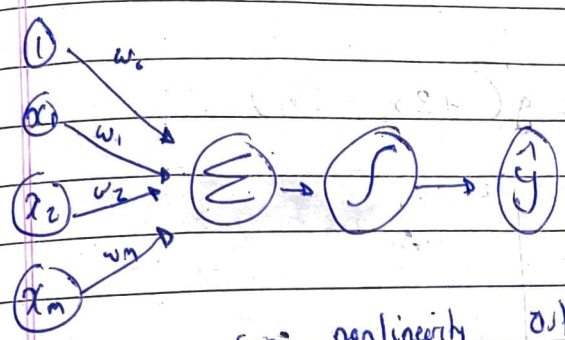 1 w₀
x₁ w₁
x₂ w₂ Σ ∫ ŷ
xₘ wₘ
nonlinearity